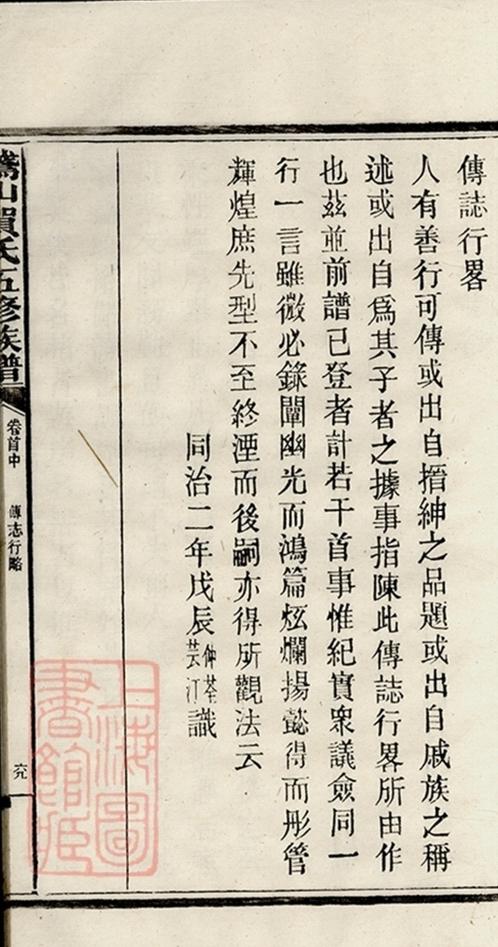 傳誌行畧
人有善行可傳或出自搢紳之品題或出自戚族之稱
述或出自爲其子者之據事指陳此傳誌行畧所由作
也茲並前譜已登者計若干首事惟紀實衆議僉同一
行一言雖微必錄闡幽光而鴻篇炫爛揚懿得而彤管
輝煌庶先型不至終湮而後嗣亦得所觀法云
同治二年戊辰仲荃芸汀識
山賀氏五修族譜
卷首中
傳志行略
上海圖
書館